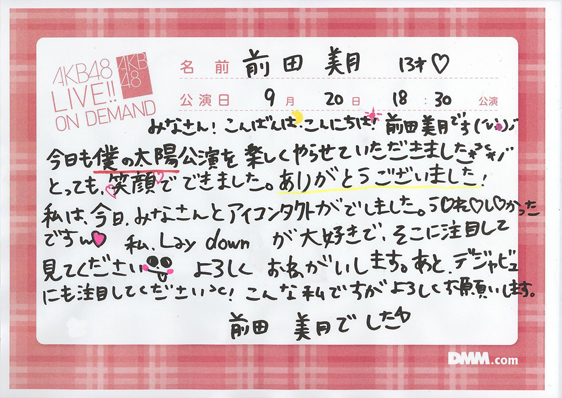 AKB48
LIVE!!
ON DEMAND
AKB
48
名前 前田 美月 13才♡
公演日 9月 20日 18:30 公演
みなさん!こんばんは、こんにちは!前田美月です
今日も僕の太陽公演を楽しくやらせていただきました
とっても、笑顔でできました。ありがとうございました!
私は、今日、みなさんとアイコンタクトがでしました。う♡れ♡し♡かった
ですm♡ 私、Lay down が大好きで、そこに注目して
見てください よろしく おねがいします。あと、デジャビュ
にも注目してください><!こんな私ですがよろしくお願いします。
前田 美月でした
DMM.com